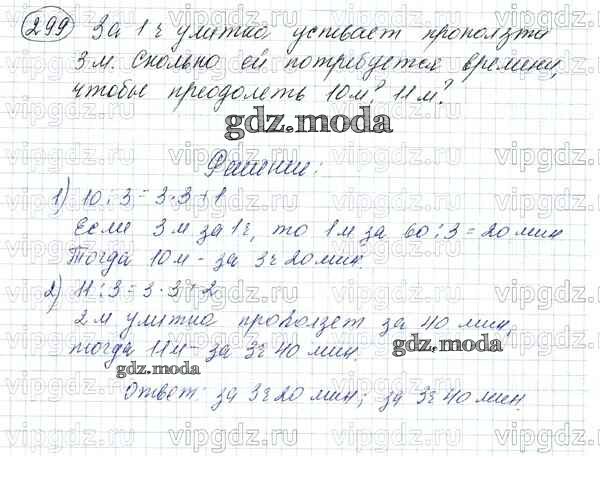 299 За 1ч улитка успевает проползти
3 м. Сколько ей потребуется времени,
чтобы преодолеть 10м? 11м?
gdz.moda
Решение:
1) 10 : 3 = 3·3+1
Если 3 м за 1ч, то 1м за 60 : 3 = 20 мин
Тогда 10м - за 3ч 20 мин.
2) 11 : 3 = 3·3+2
2 м улитка проползет за 40 мин,
тогда 11м - за 3ч 40 мин.
gdz.moda
gdz.moda
Ответ: за 3ч 20 мин; за 3ч 40 мин.
vipgdz.ru